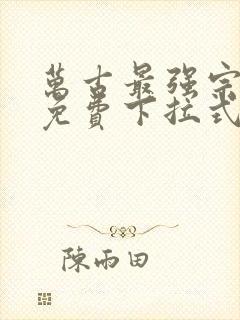 萬古最强宗
免費下拉式
陳雨田